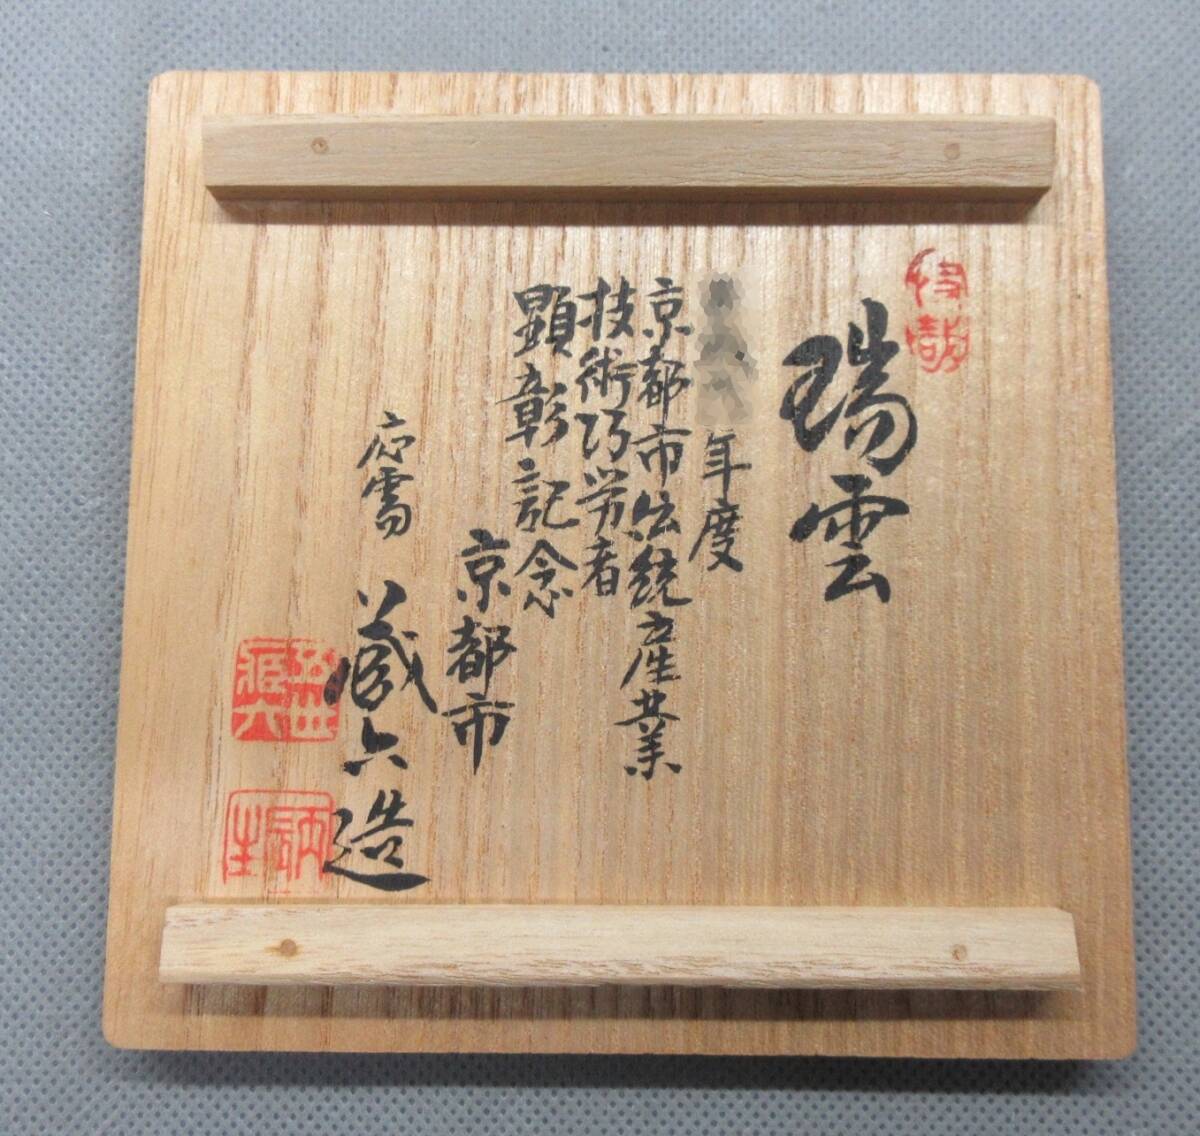 瑞雲
年度
京都市伝統産業
技術功労者
顕彰記念
京都市
応需
蔵六造